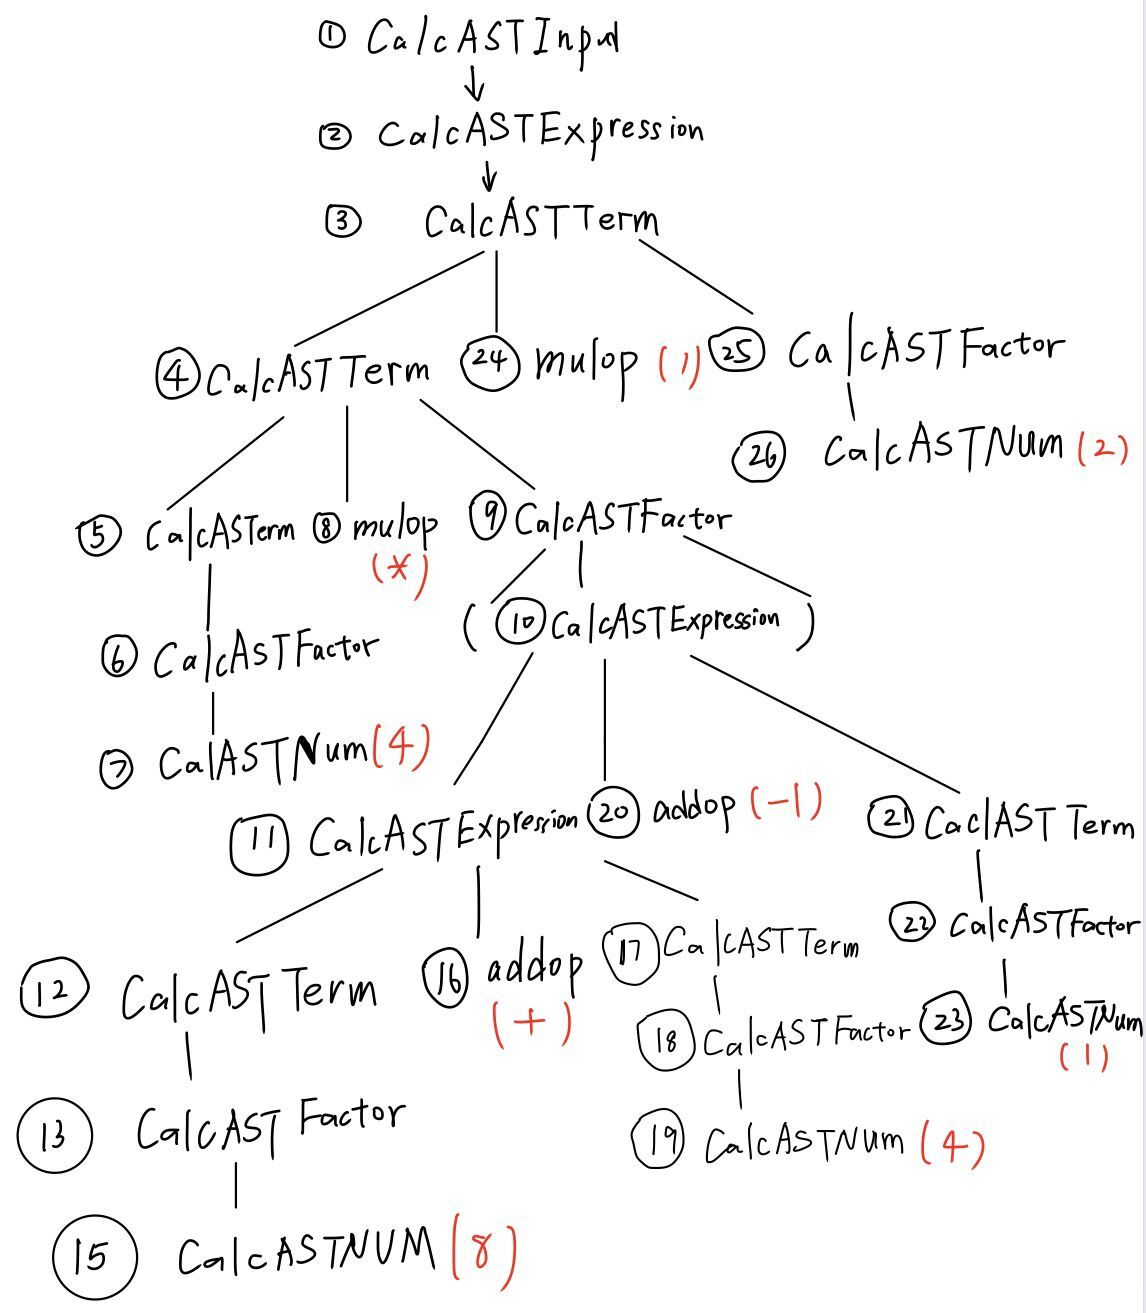 ① CalcASTInput
② CalcASTExpression
③ CalcASTTerm
④ CalcASTTerm ㉔ mulop (/) ㉕ CalcASTFactor
㉖ CalcASTNum (2)
⑤ CalcASTerm ⑧ mulop ⑨ CalcASTFactor
(*)
( ⑩ CalcASTExpression )
⑥ CalcASTFactor
⑦ CalASTNum (4)
⑪ CalcASTExpression ⑳ addop (-1) ㉑ CaclASTTerm
⑫ CalcASTTerm ⑯ addop ⑰ CalcASTTerm ㉒ CalcASTFactor
(+)
⑱ CalcASTFactor ㉓ CalcASTNum
(1)
⑬ CalcASTFactor ⑲ CalcASTNum (4)
⑮ CalcASTNUM (8)